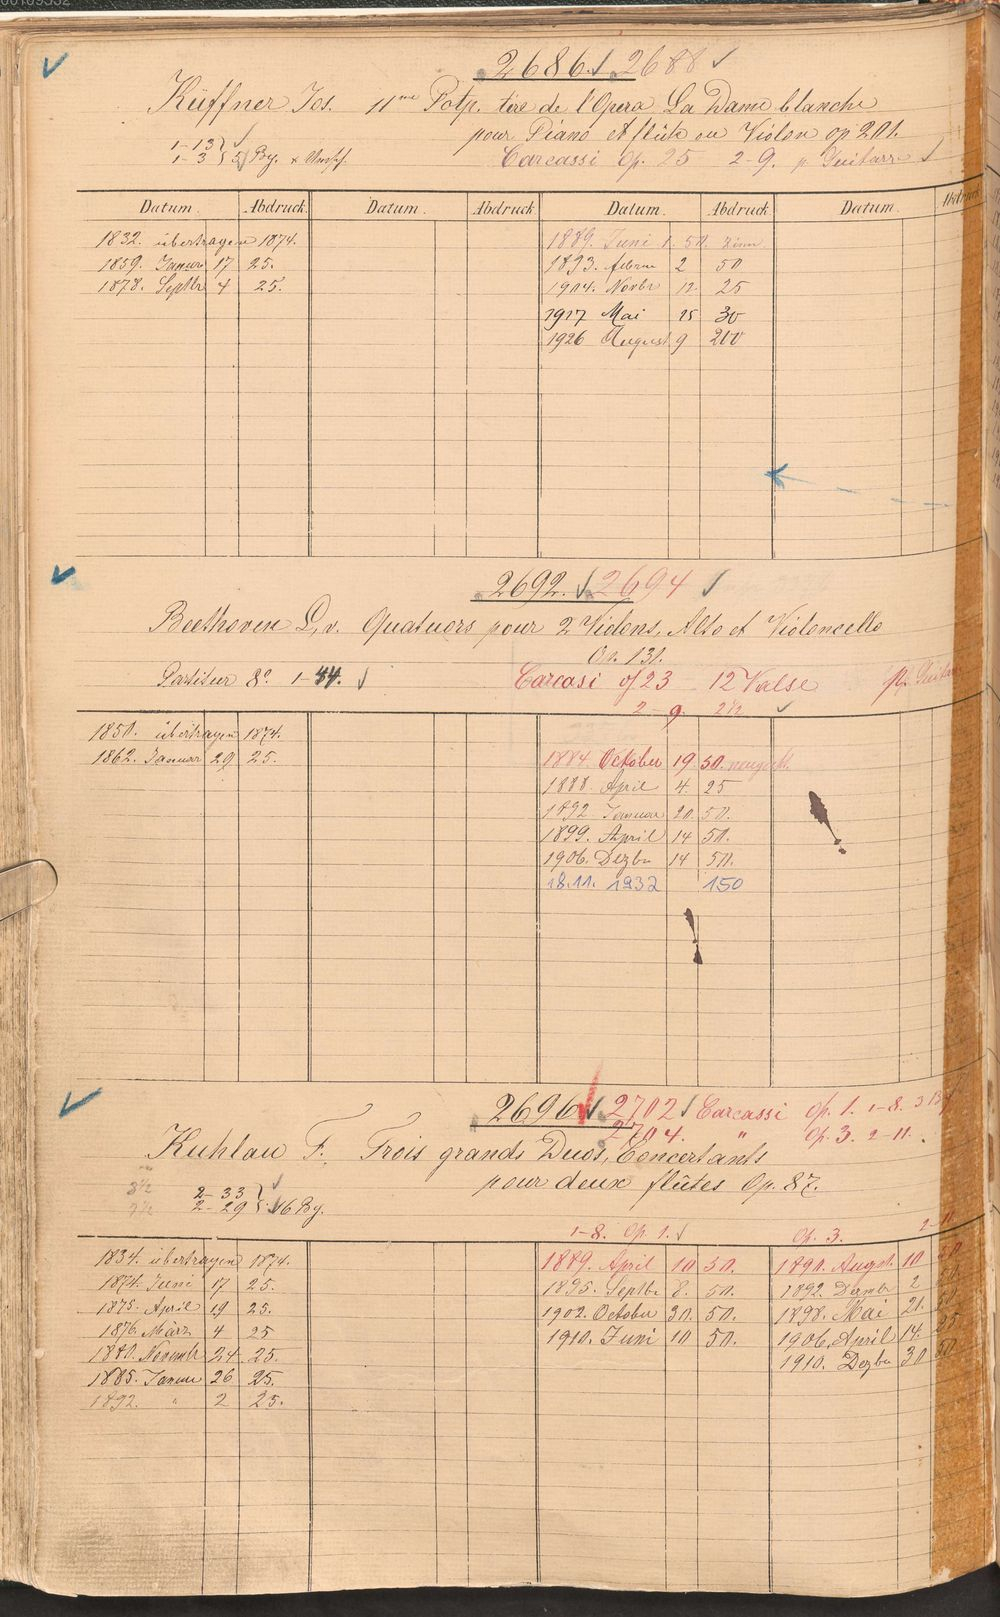 2686 2688
Küffner Jos. 11me Potp. tiré de l'Opera La Dame blanche
pour Piano et flûte ou Violon op 201.
1-13
1-3 By.
Carcassi Op. 25 2-9. p Guitarre
Datum. Abdruck Datum. Abdruck Datum. Abdruck Datum.
1832. übertragen 1874. 1889. Juni 1. 50.
1859. Januar 17 25. 1893. Februr 2 50
1878. Septbr 4 25. 1904. Novbr 12 25
1917 Mai 15 30
1926 August 9 200
2692. 2694
Beethoven L. v. Quatuors pour 2 Violons, Alto et Violoncello
Op. 131.
Partitur 8o. 1-44. Carcasi of 23 12 Valse
2-9. 2½
1850. übertragen 1874.
1862. Januar 29 25. 1884. October 19 50.
1888. April 4. 25
1892 Januar 20. 50.
1899. April 14 50.
1906. Dezbr 14 50.
18.11. 1932 150
2696 2702 Carcassi Op. 1. 1-8.
2704. " Op. 3. 2-11.
Kuhlau F. Trois grands Duos, Concertants
pour deux flûtes Op. 87.
2-33
2-29 16 By.
1-8. Op. 1. Op. 3. 2-11
1834. übertragen 1874. 1889. April 10 50. 1890. August 10 50.
1874. Juni 17 25. 1895. Septbr 8. 50. 1892. Dezmbr 2 50.
1875. April 19 25. 1902. October 30. 50. 1898. Mai 21. 50
1876. März 4 25 1910. Juni 10 50. 1906. April 14. 25
1880. Novembr 24 25. 1910. Dezbr 30 50.
1885. Januar 26 25.
1892. " 2 25.